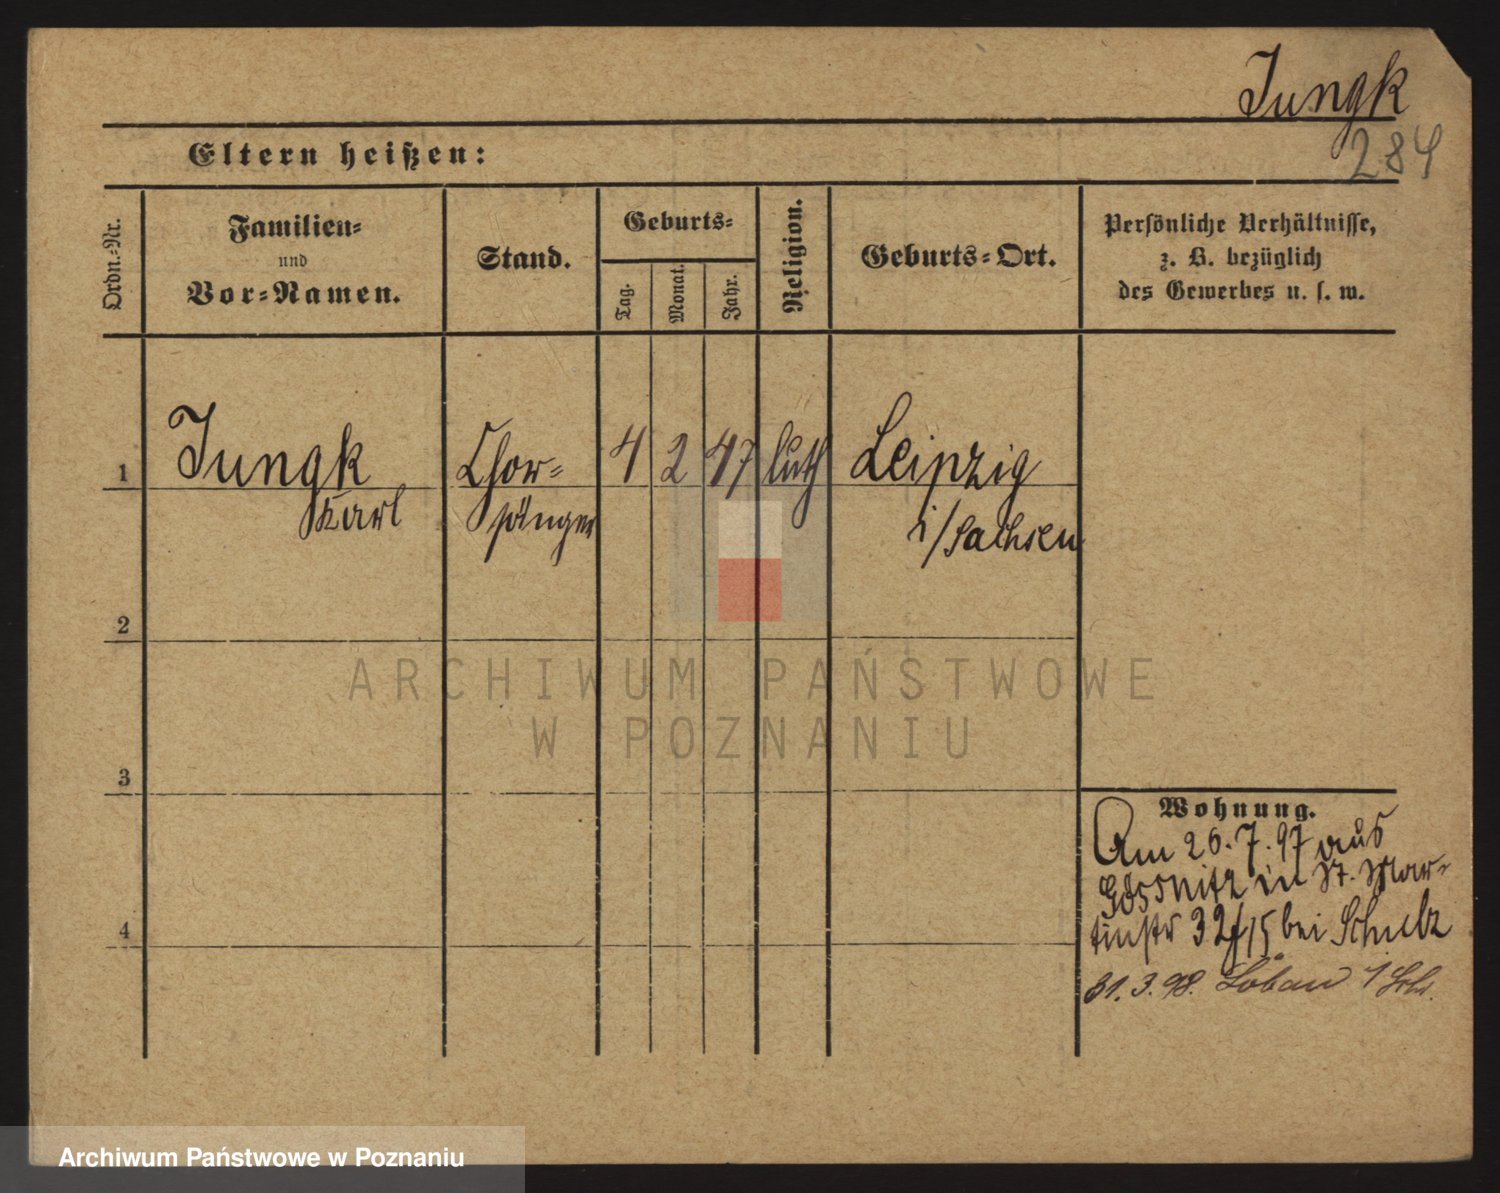 Jungk
284
Eltern heißen:
Ordn.-Nr.
Familien-
und
Vor-Namen.
Stand.
Geburts-
Tag.
Monat.
Jahr.
Religion.
Geburts-Ort.
Persönliche Verhältnisse,
z. B. bezüglich
des Gewerbes u. s. w.
1
Jungk
Karl
Chor-
sänger
4
2
47
luth
Leipzig
i/Sachsen
2
3
4
Wohnung.
Am 26.7.97 aus
Gössnitz in St. Mar-
tinstr 32/15 bei Schulz
31.3.98. Löbau
ARCHIWUM PAŃSTWOWE
W POZNANIU
Archiwum Państwowe w Poznaniu